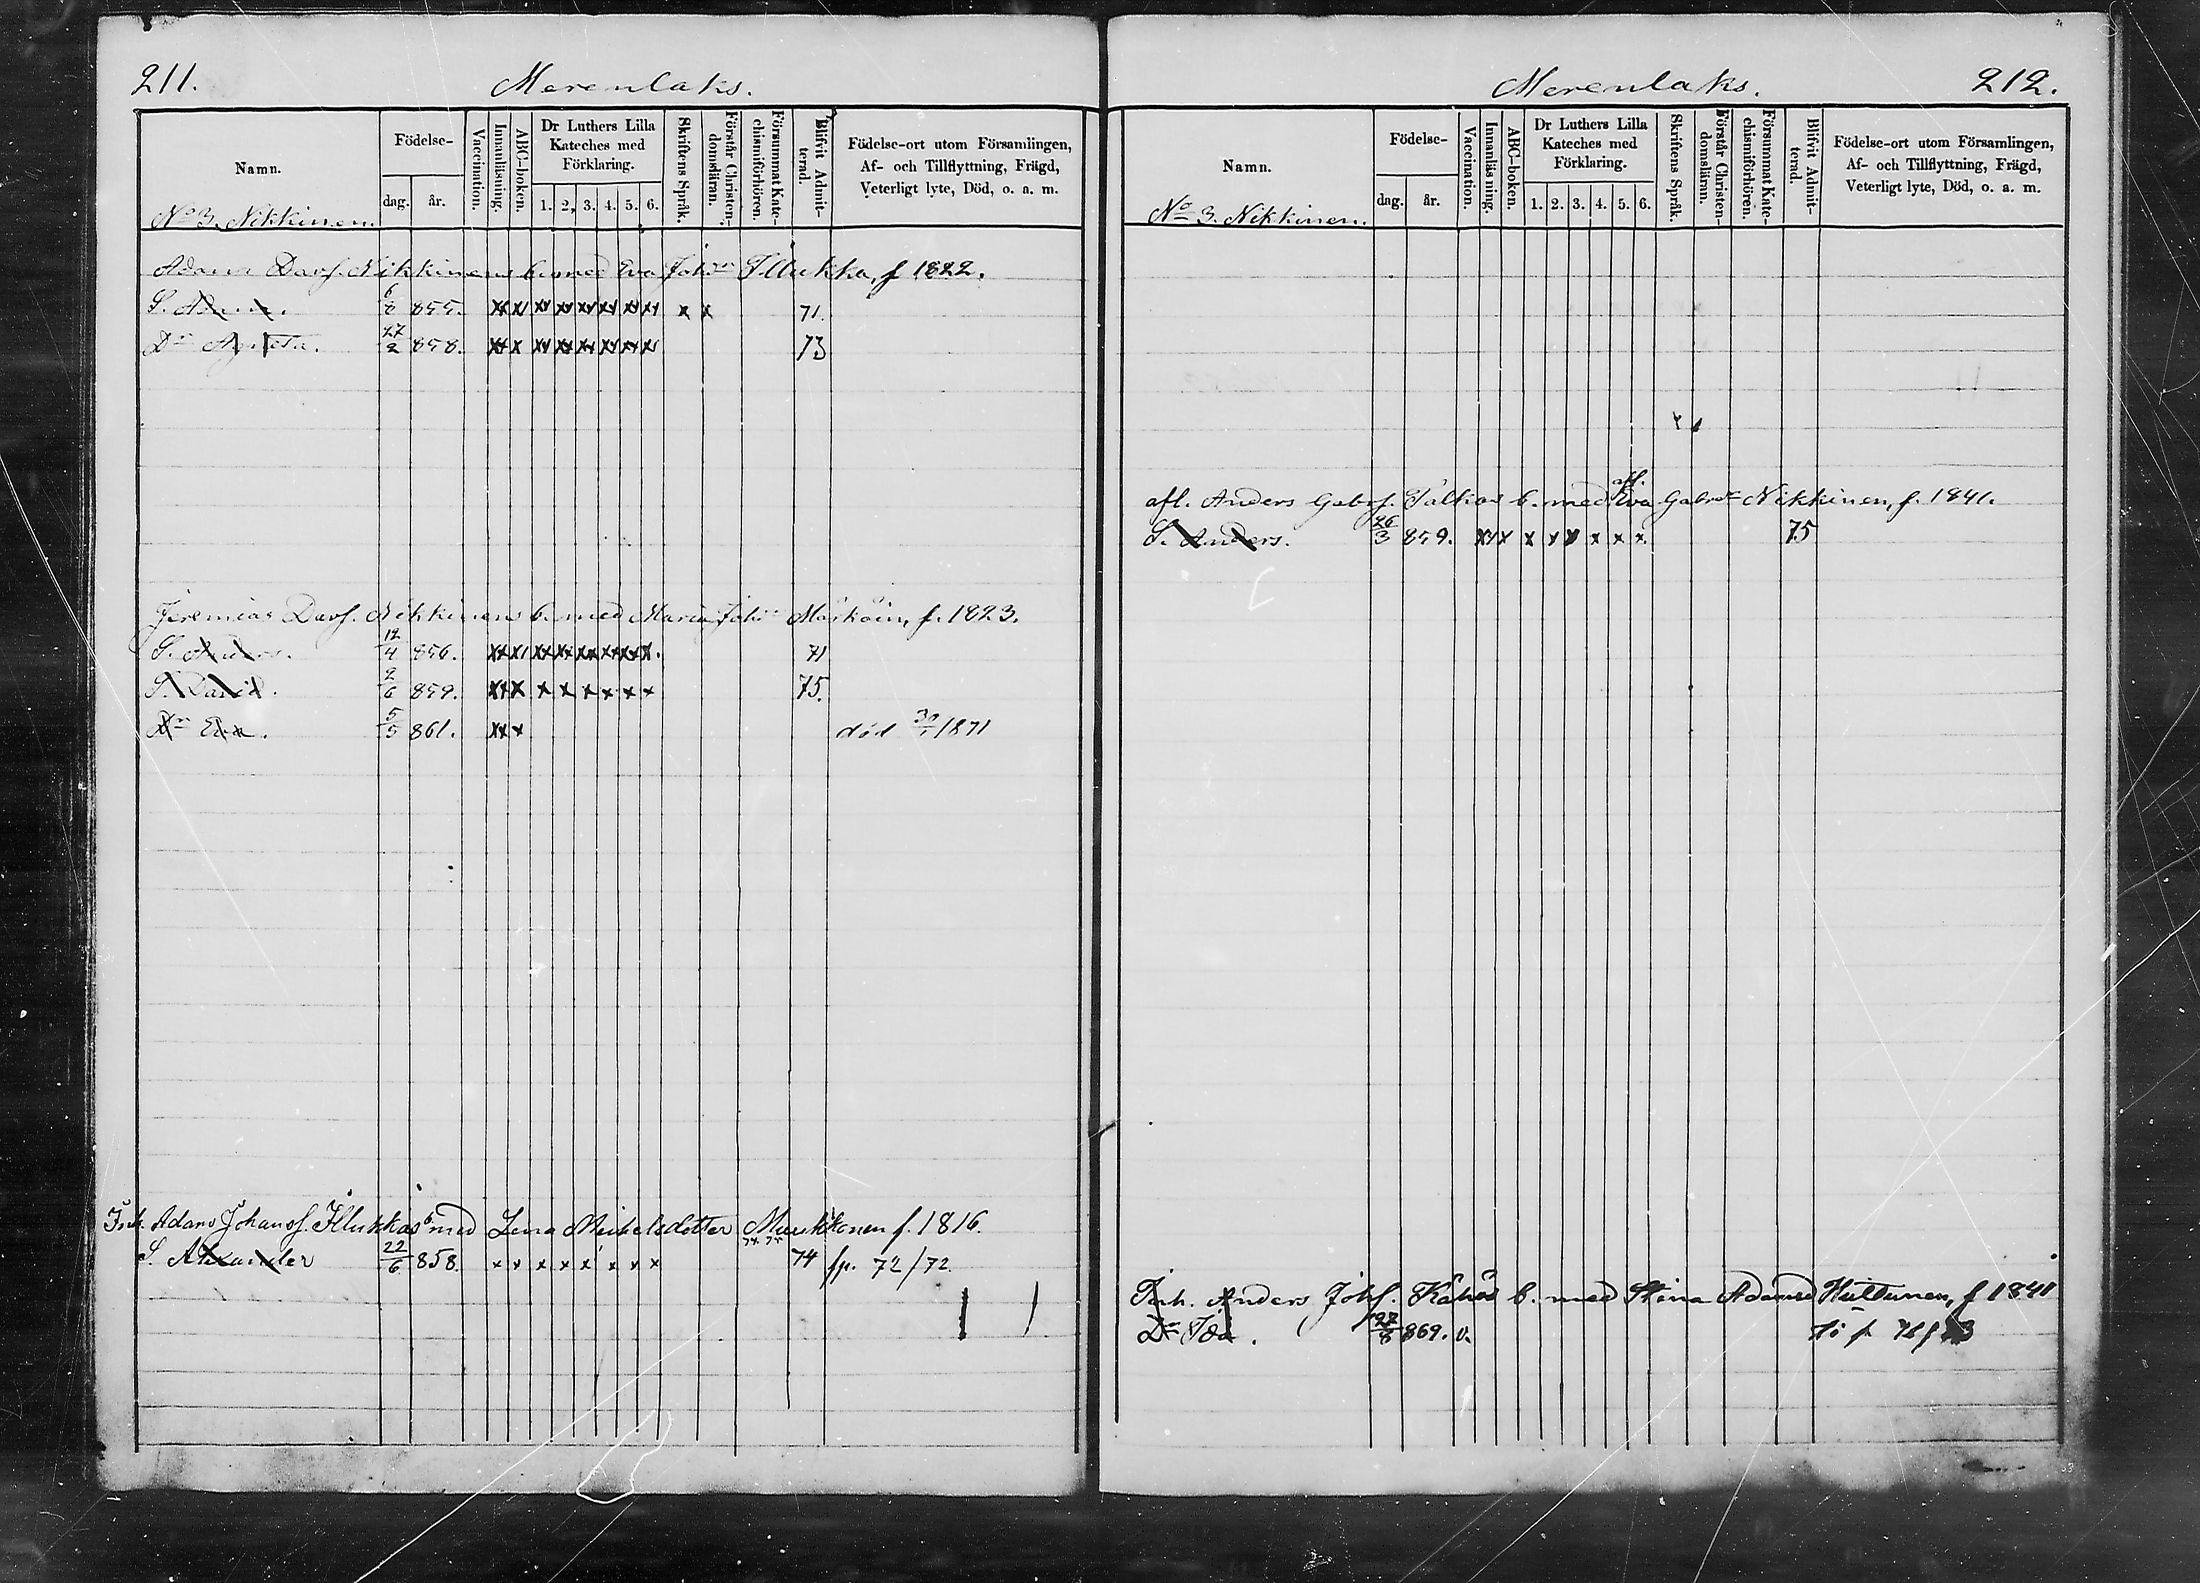 211. Merenlaks.
Namn.
Födelse-
dag. år.
Vaccination.
Innanläsning.
ABC-boken.
Dr Luthers Lilla Kateches med Förklaring.
1. 2. 3. 4. 5. 6.
Skriftens Språk.
Förstår Christendomsläran.
Försummat Katechismiförhören.
Blifvit Admitterad.
Födelse-ort utom Församlingen,
Af- och Tillflyttning, Frägd,
Veterligt lyte, Död, o. a. m.
No 3. Nikkinen.
Adam Davs. Nikkinens b. med Eva Johdr Illukka, f 1822.
S. Adam. 6/8 855. 71.
Dr Agneta. 27/2 858. 73
Jeremias Davs. Nikkinens b. med Maria Johdr f. 1823.
S. Anders. 12/4 856. 71
S. David. 2/6 859. 75.
Dr Eva. 5/5 861. död 1871
Inh. Adam Johans. Illukkas b med Lena Michelsdotter Muukkonen f. 1816.
S. Alexander 22/6 858. x x x x x x x x 74 fp. 72/72.
Merenlaks. 212.
Namn.
Födelse-
dag. år.
Vaccination.
Innanläsning.
ABC-boken.
Dr Luthers Lilla Kateches med Förklaring.
1. 2. 3. 4. 5. 6.
Skriftens Språk.
Förstår Christendomsläran.
Försummat Katechismiförhören.
Blifvit Admitterad.
Födelse-ort utom Församlingen,
Af- och Tillflyttning, Frägd,
Veterligt lyte, Död, o. a. m.
No 3. Nikkinen.
afl. Anders Gabrs. b. med afl. Eva Gabrdr Nikkinen, f. 1841.
S. Anders. 26/3 859. 75
Inh. Anders Johs. b. med Stina Adamsd Huttunen, f 1841
Dr Ida. 27/8 869. v.